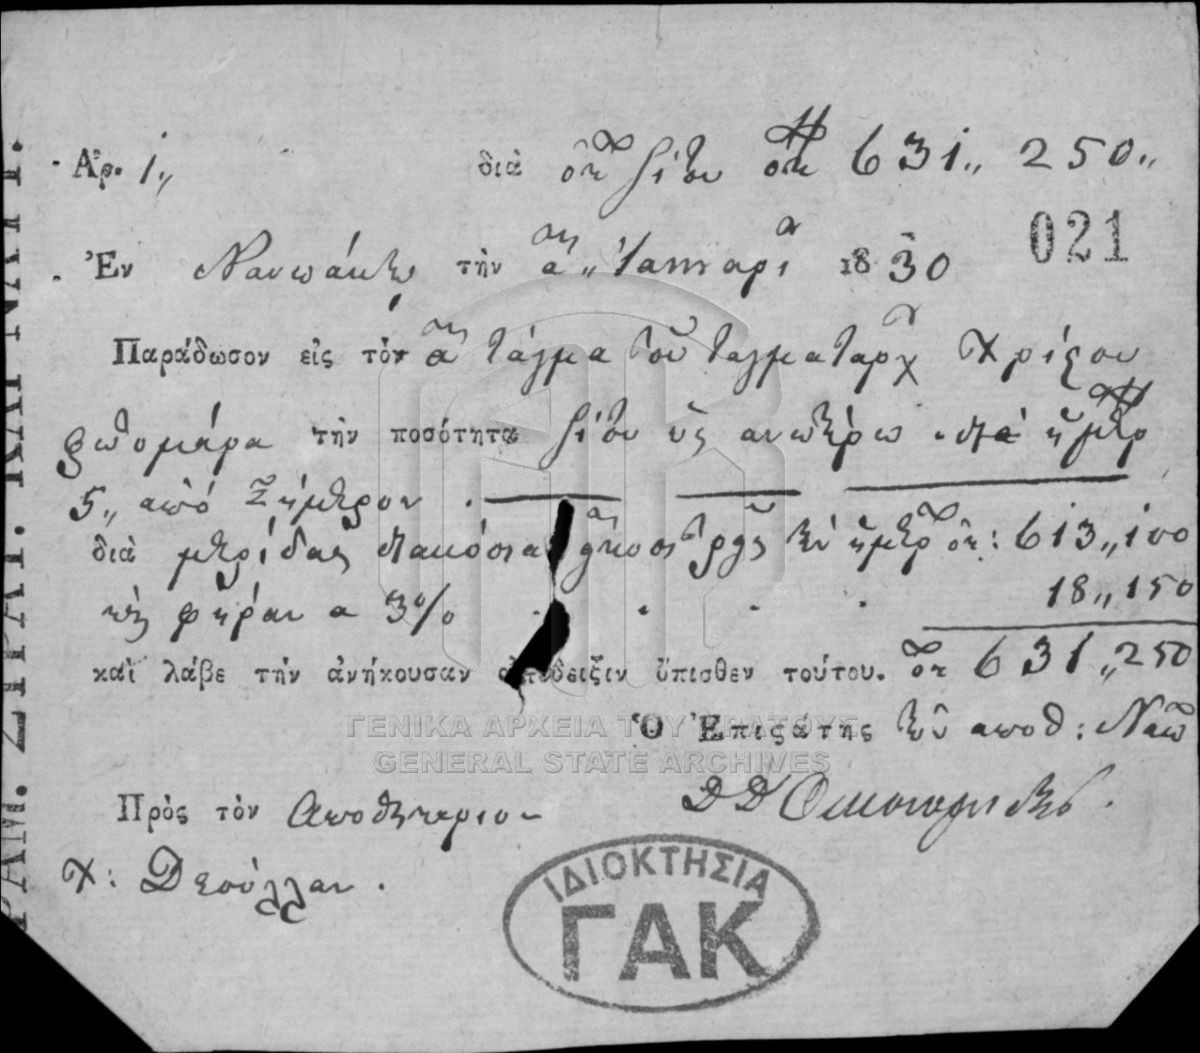 Ἀρ. 1,, διὰ ὀκ σίτου ὀκ 631,, 250,,
021
Ἐν Ναυπάκτῳ τὴν α,, Ἰανουαρί 1830
Παράδωσον εἰς τὸν α τάγμα τοῦ ταγματαρχ Χρίστου
φωτομάρα τὴν ποσότητα σίτου ὡς ανωτέρω δια ἡμερ
5,, από Σήμερον
διὰ μερίδας διακόσια τὴν ἡμερ ὀκ: 613,,100
φύραν α 3% 18,,150
καὶ λάβε τὴν ἀνήκουσαν ἀπόδειξιν ὄπισθεν τούτου. ὀκ 631,,250
Ὁ Ἐπιστάτης τῶν αποθ: Ναυπ
Πρὸς τὸν Αποθηκάριον
Χ: Δεσύλλαν.
ΓΕΝΙΚΑ ΑΡΧΕΙΑ ΤΟΥ ΚΡΑΤΟΥΣ
GENERAL STATE ARCHIVES
ΙΔΙΟΚΤΗΣΙΑ
ΓΑΚ